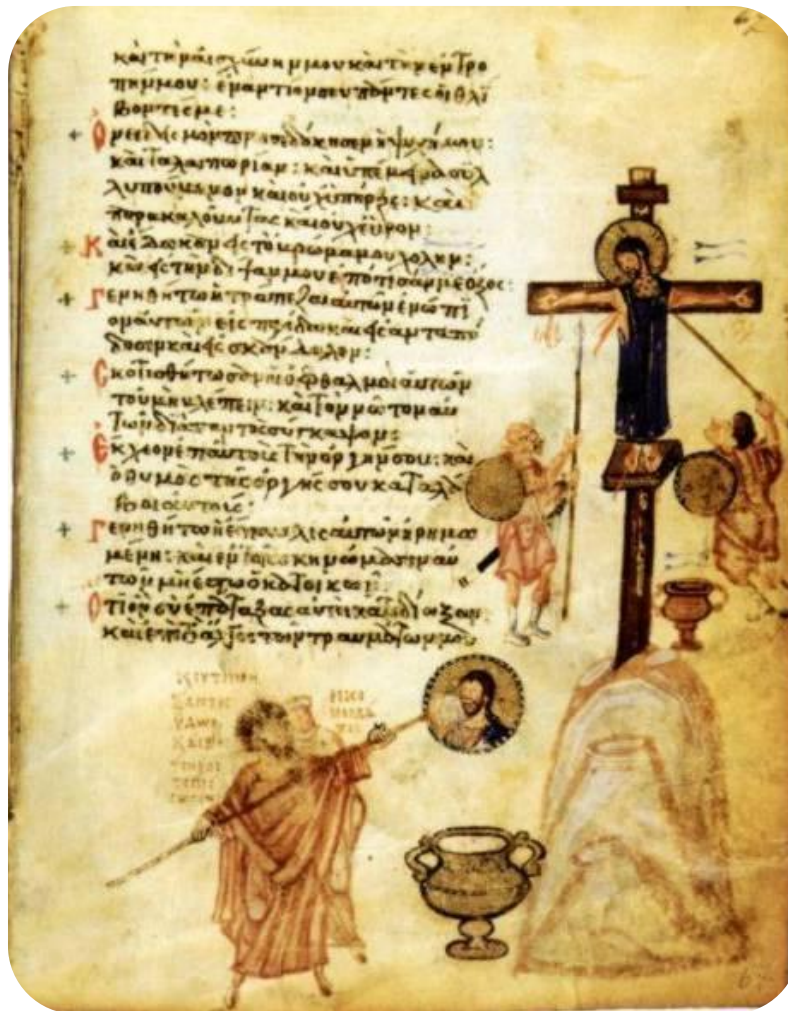 καὶ τὴν αἰσχύνην μου καὶ τὴν ἐντρο
πήν μου: ἐναντίον σου πάντες οἱ θλί
βοντές με:
προσεδόκησεν ἡ ψυχή μου:
καὶ ταλαιπωρίαν: καὶ ὑπέμεινα συλ
λυπούμενον καὶ οὐχ ὑπῆρξε: καὶ
παρακαλοῦντας καὶ οὐχ εὗρον:
Καὶ ἔδωκαν εἰς τὸ βρῶμά μου χολήν:
καὶ εἰς τὴν δίψαν μου ἐπότισάν με ὄξος:
Γενηθήτω ἡ τράπεζα αὐτῶν ἐνώπι
ον αὐτῶν εἰς παγίδα καὶ εἰς ἀνταπό
δοσιν καὶ εἰς σκάνδαλον:
Σκοτισθήτωσαν οἱ ὀφθαλμοὶ αὐτῶν
τοῦ μὴ βλέπειν: καὶ τὸν νῶτον αὐ
τῶν διὰ παντὸς σύγκαμψον:
Ἔκχεον ἐπ αὐτοὺς τὴν ὀργήν σου: καὶ
ὁ θυμὸς τῆς ὀργῆς σου καταλά
βοι αὐτούς:
Γενηθήτω ἡ ἔπαυλις αὐτῶν ἠρημω
μένη: καὶ ἐν τοῖς σκηνώμασιν αὐ
τῶν μὴ ἔστω ὁ κατοικῶν:
Ὅτι ὃν σὺ ἐπάταξας αὐτοὶ κατεδίωξαν:
καὶ ἐπὶ τὸ ἄλγος τῶν τραυμάτων μου